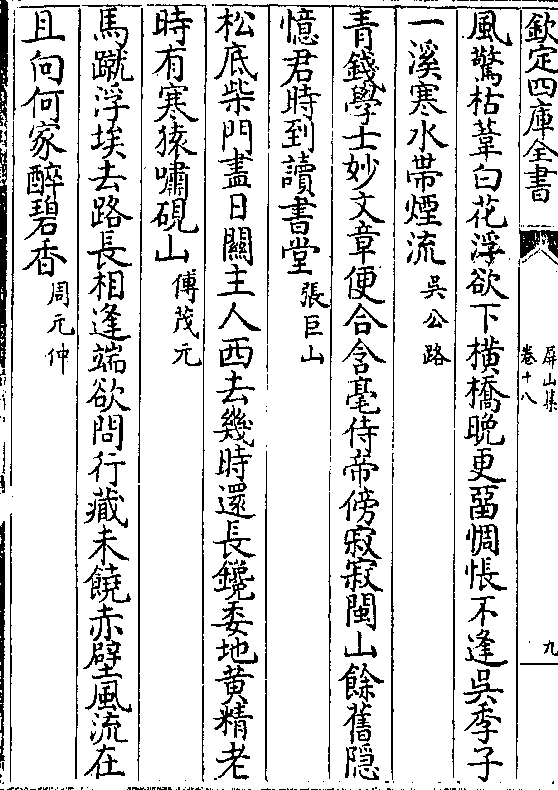 欽定四庫全書
屏山集
卷十八
九
風驚枯葦白花浮欲下横橋晚更畱惆悵不逢吳季子
一溪寒水帶煙流吳公路
青錢學士妙文章便合含毫侍帝傍寂寂閩山餘舊隱
憶君時到讀書堂張巨山
松底柴門盡日關主人西去幾時還長鑱委地黄精老
時有寒猿嘯硯山傅茂元
馬蹴浮埃去路長相逢端欲問行藏未饒赤壁風流在
且向何家醉碧香周元仲